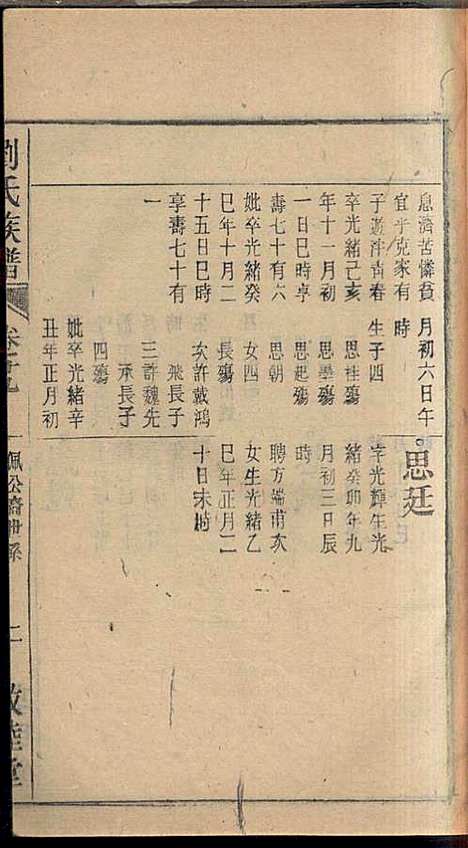 息濟苦憐貧
宜乎克家有
子遊泮青春
卒光緒己亥
年十一月初
一日巳時享
壽七十有六
妣卒光緒癸
巳年十月二
十五日巳時
享壽七十有
一
月初六日午
時
生子四
思桂殤
思墨殤
思起殤
思朝
女四
長殤
次許戴鴻
飛長子
三許魏先
承長子
四殤
妣卒光緒辛
丑年正月初
思廷
字光輝生光
緒癸卯年九
月初三日辰
時
聘方端甫次
女生光緒乙
巳年正月二
十日未時
劉氏族譜
卷
佩公裔
二
敦睦堂